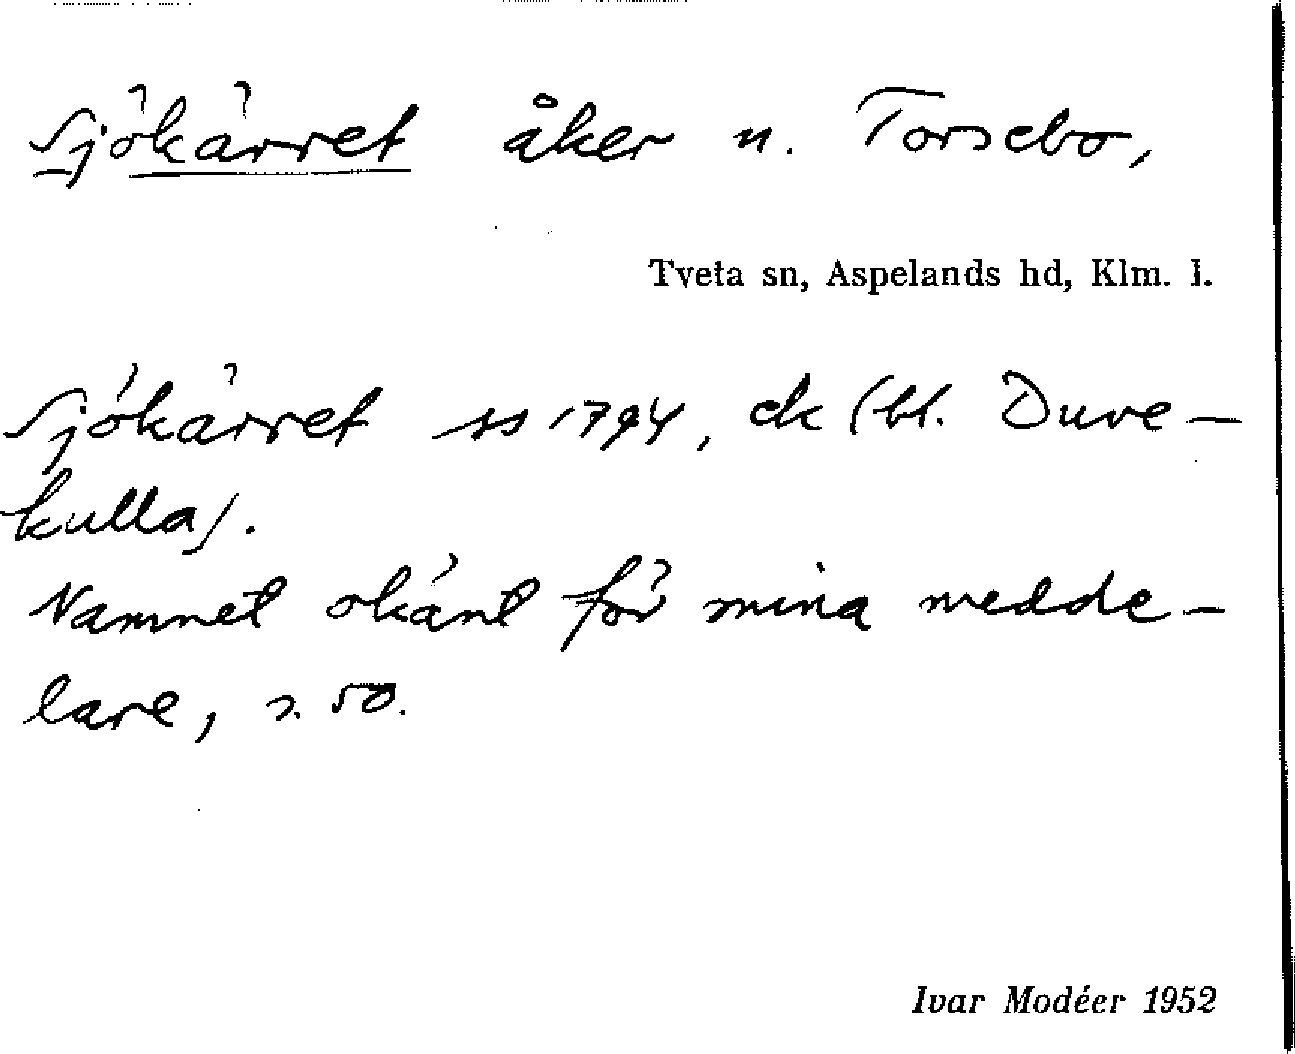 Sjökärret åker n. Torsebo,
Tveta sn, Aspelands hd, Klm. l.
Sjökärret ss 1794, ek (bl. Duve-
kulla).
Namnet okänt för mina medde-
lare, 2. 50.
Ivar Modéer 1952